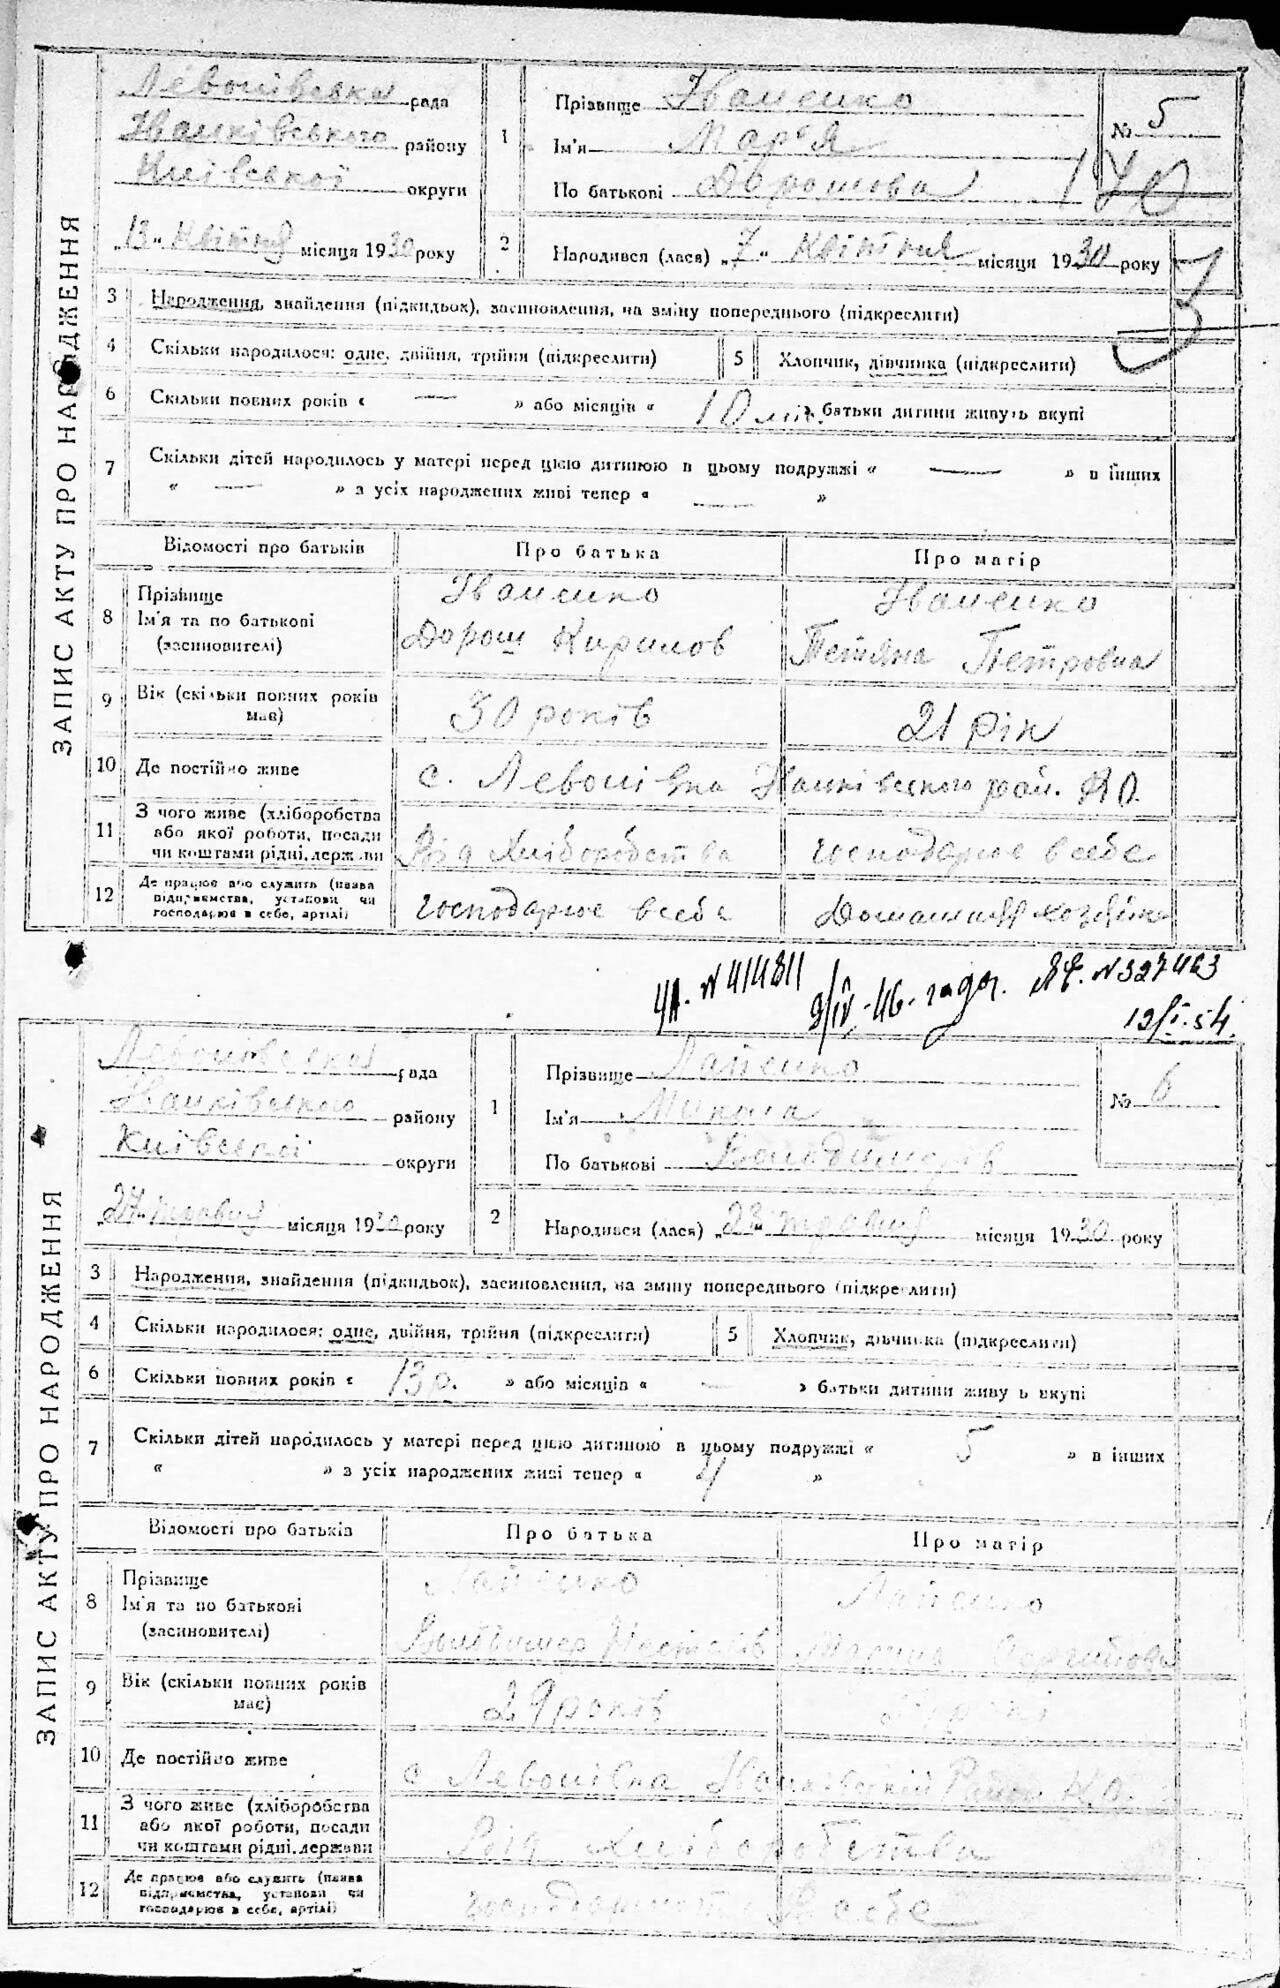 ЗАПИС АКТУ ПРО НАРОДЖЕННЯ
Левонівська рада
Іванківського району
Київської округи
„13“ Квітня місяця 1930 року
1
Прізвище Іваненко
Ім'я Мар'я
По батькові Дорошова
№ 5
140
2 Народився (лася) „7“ Квітня місяця 1930 року
3 Народження, знайдення (підкидьок), засиновлення, на зміну попереднього (підкреслити)
4 Скільки народилося: одне, двійня, трійня (підкреслити)
5 Хлопчик, дівчинка (підкреслити)
6 Скільки повних років « — » або місяців « 10 міс. » батьки дитини живуть вкупі
7 Скільки дітей народилось у матері перед цією дитиною в цьому подружжі « — » в інших
« — » з усіх народжених живі тепер « — »
Відомості про батьків Про батька Про матір
8 Прізвище
Ім'я та по батькові
(засиновителі)
Іваненко
Дорош Кирилов
Іваненко
Тетяна Петровна
9 Вік (скільки повних років
має)
30 років
21 рік
10 Де постійно живе
с. Левонівка Іванківського рай. К О.
11 З чого живе (хліборобства
або якої роботи, посади
чи коштами рідні, держави
Від Хліборобства
господарює в себе
12 Де працює або служить (назва
підприємства, установи чи
господарює в себе, артілі)
господарює в себе
Домашняя хозяйка
№ 414811
9/IV-46 года. № 327463
12/I-54.
ЗАПИС АКТУ ПРО НАРОДЖЕННЯ
рада
Іванківського району
Київської округи
„27“ травня місяця 1930 року
1
Прізвище
Ім'я Микола
По батькові Володимирів
№ 6
2 Народився (лася) „23“ травня місяця 1930 року
3 Народження, знайдення (підкидьок), засиновлення, на зміну попереднього (підкреслити)
4 Скільки народилося: одне, двійня, трійня (підкреслити)
5 Хлопчик, дівчинка (підкреслити)
6 Скільки повних років « 13 р. » або місяців « — » батьки дитини живуть вкупі
7 Скільки дітей народилось у матері перед цією дитиною в цьому подружжі « 5 » в інших
« » з усіх народжених живі тепер « 4 »
Відомості про батьків Про батька Про матір
8 Прізвище
Ім'я та по батькові
(засиновителі)
9 Вік (скільки повних років
має)
29 років
10 Де постійно живе
с Левонівка Іванківський Район К.О.
11 З чого живе (хліборобства
або якої роботи, посади
чи коштами рідні, держави
Від Хліборобства
12 Де працює або служить (назва
підприємства, установи чи
господарює в себе, артілі)
в себе